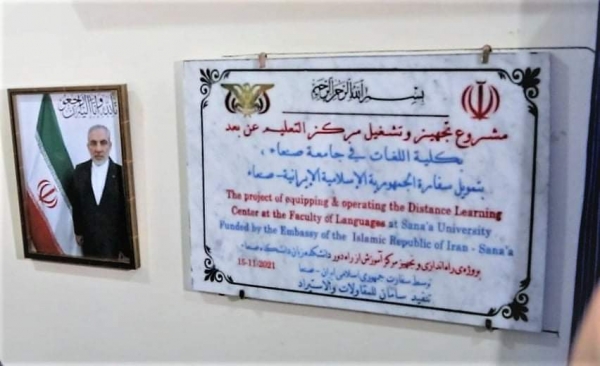 إنا لله وإنا إليه راجعون
بسم الله الرحمن الرحيم
مشروع تجهيز وتشغيل مركز التعليم عن بعد
كلية اللغات في جامعة صنعاء ،
بتمويل سفارة الجمهورية الإسلامية الإيرانية- صنعاء
The project of equipping & operating the Distance Learning
Center at the Faculty of Languages at Sana'a University
Funded by the Embassy of the Islamic Republic of Iran - Sana'a
پروژه‌ی راه اندازی و تجهیز مرکز آموزش از راه دور دانشکده زبان دانشگاه صنعاء
توسط سفارت جمهوری اسلامی ایران - صنعا
15-11-2021
تنفيذ سامان للمقاولات والاستيراد